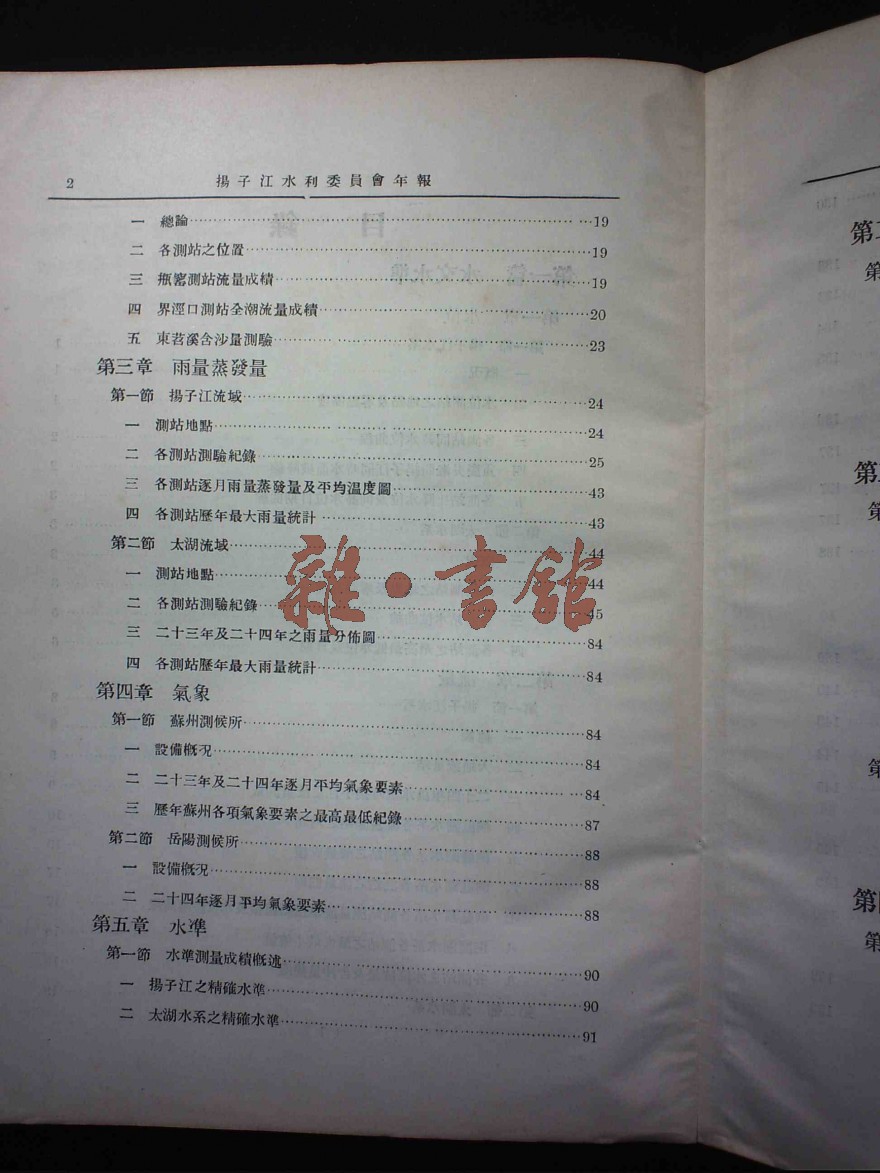 2 揚子江水利委員會年報
一 總論 19
二 各測站之位置 19
三 瓶窰測站流量成績 19
四 界涇口測站全潮流量成績 20
五 東苕溪含沙量測驗 23
第三章 雨量蒸發量
第一節 揚子江流域 24
一 測站地點 24
二 各測站測驗紀錄 25
三 各測站逐月雨量蒸發量及平均溫度圖 43
四 各測站歷年最大雨量統計 43
第二節 太湖流域 44
一 測站地點 44
二 各測站測驗紀錄 45
三 二十三年及二十四年之雨量分佈圖 84
四 各測站歷年最大雨量統計 84
第四章 氣象
第一節 蘇州測候所 84
一 設備槪况 84
二 二十三年及二十四年逐月平均氣象要素 84
三 歷年蘇州各項氣象要素之最高最低紀錄 87
第二節 岳陽測候所 88
一 設備槪况 88
二 二十四年逐月平均氣象要素 88
第五章 水準
第一節 水準測量成績槪述 90
一 揚子江之精確水準 90
二 太湖水系之精確水準 91
雜·書館